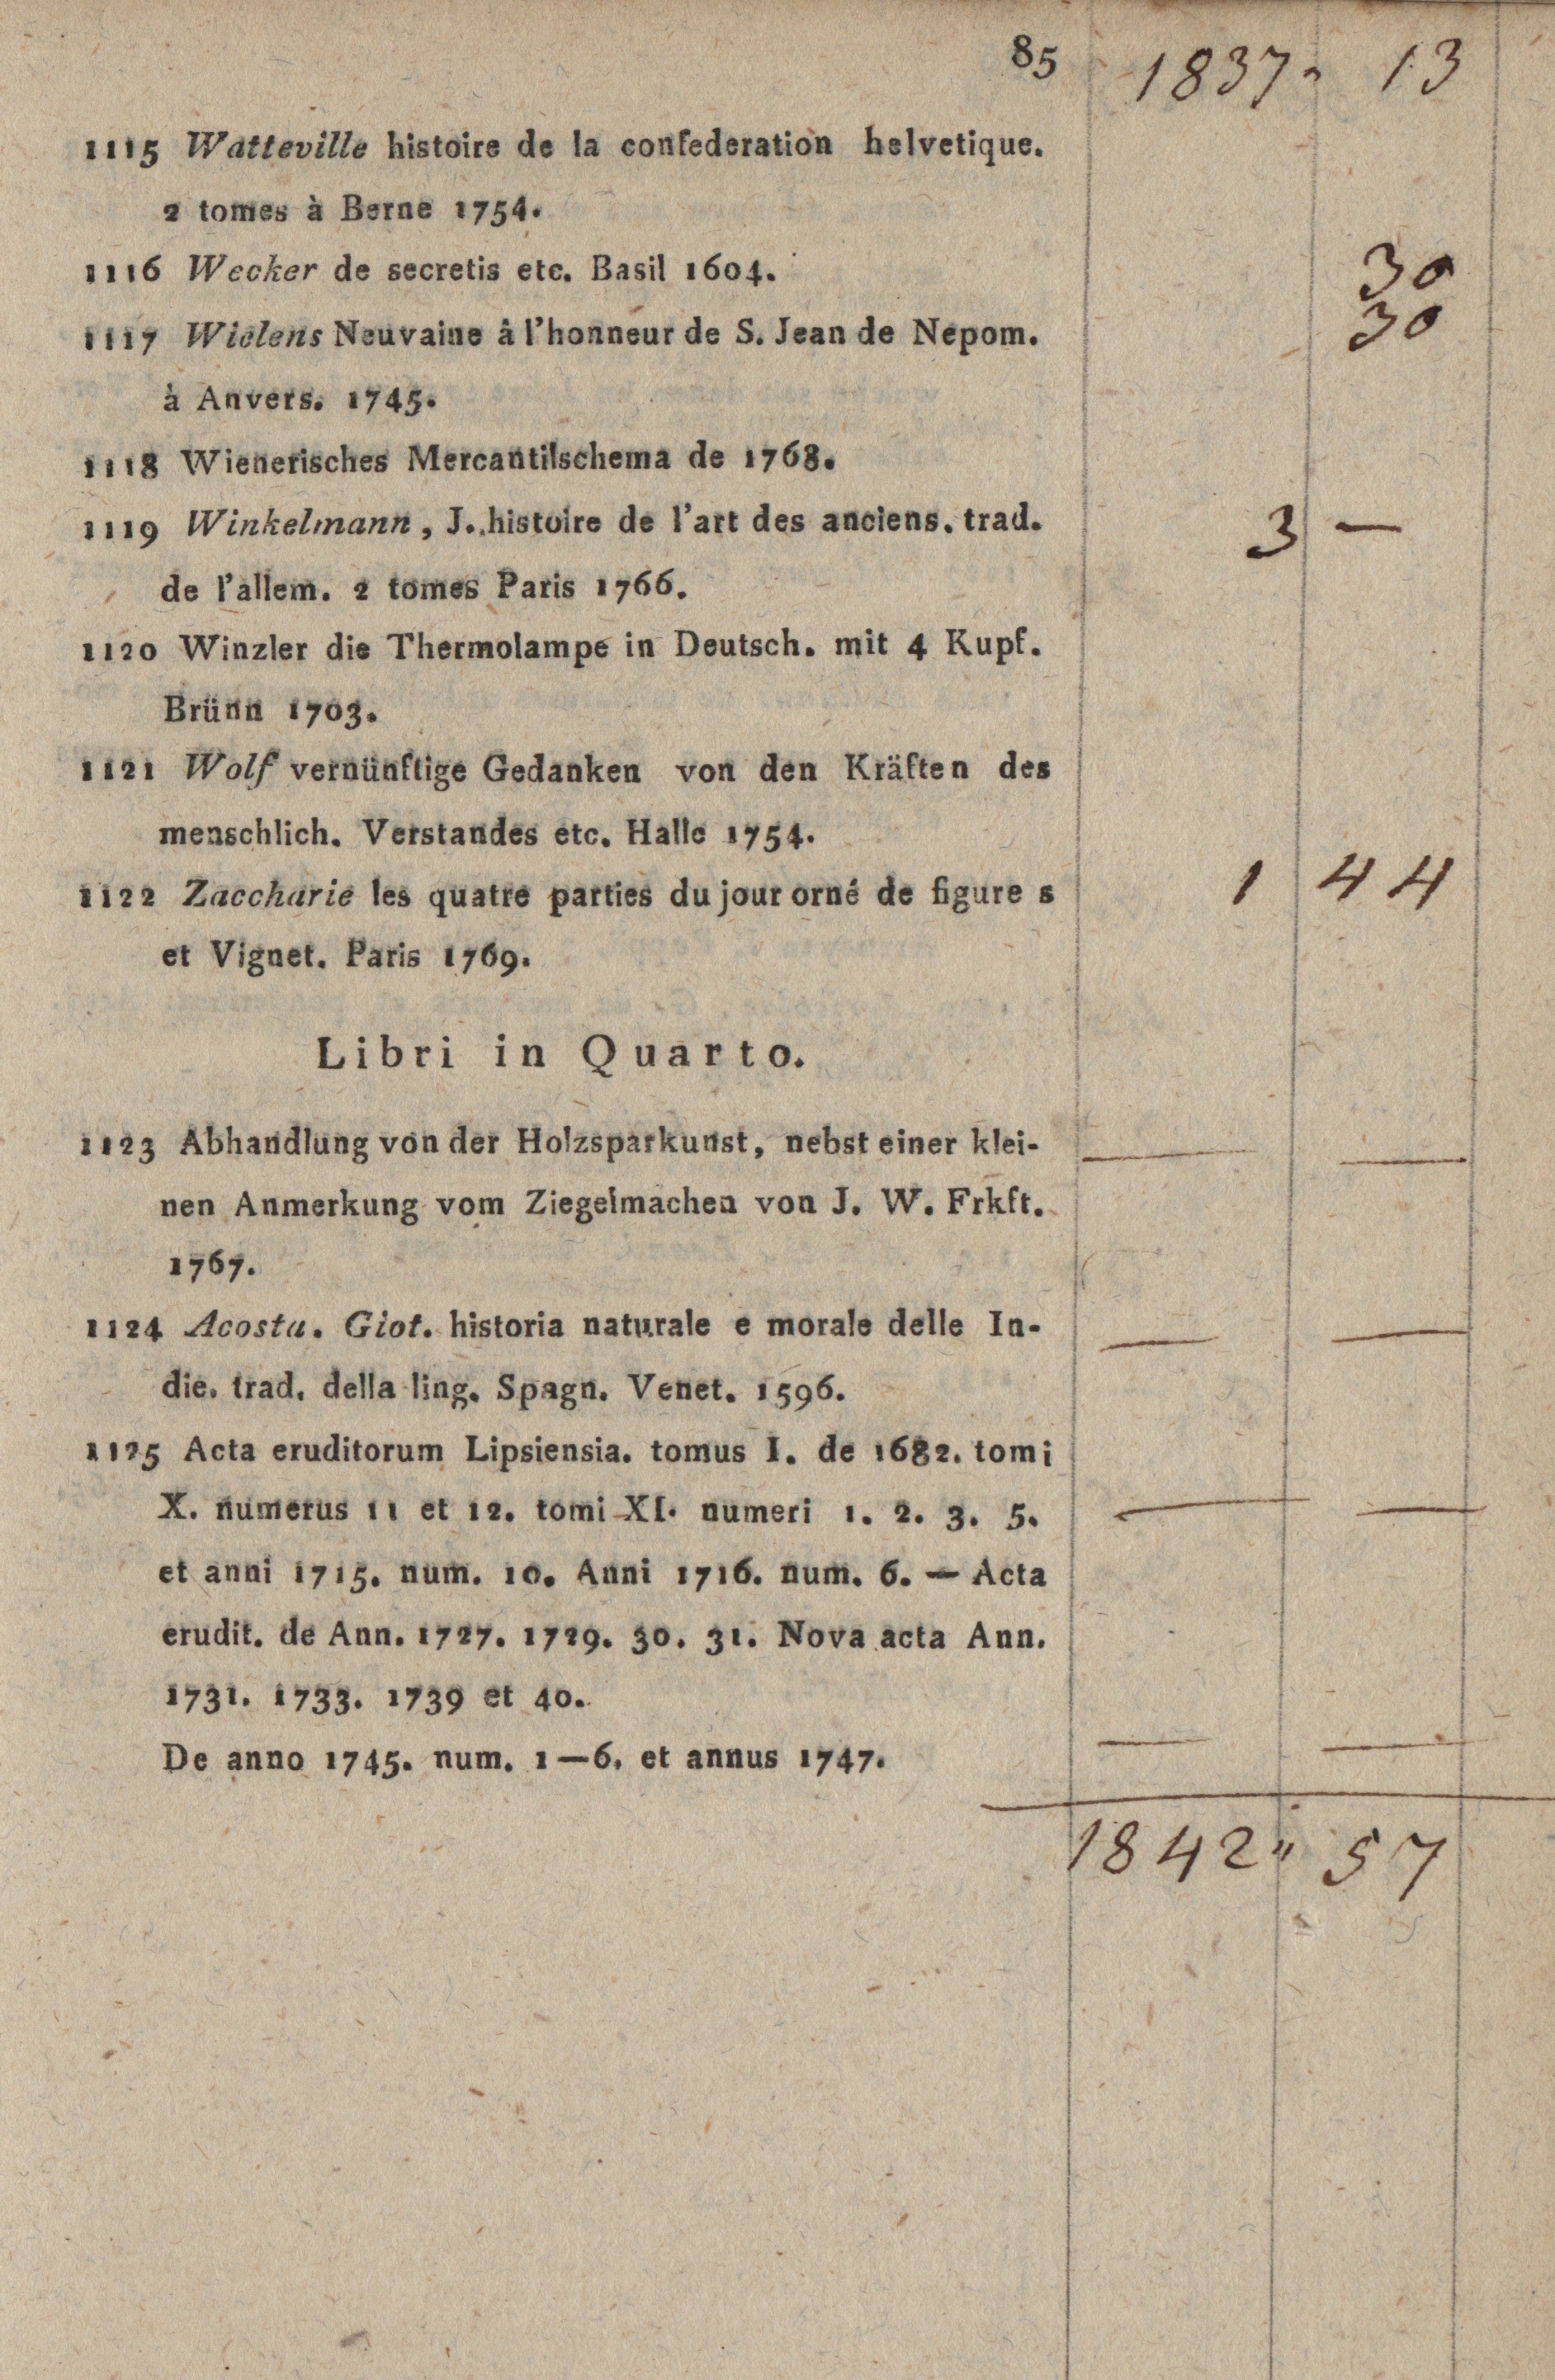 85 1837 " 13
1115 Watteville histoire de la confederation helvetique.
2 tomes à Berne 1754.
1116 Wecker de secretis etc. Basil 1604. 30
1117 Wielens Neuvaine â l'honneur de S. Jean de Nepom. 30
à Anvers. 1745.
1118 Wienerisches Mercantilschema de 1768.
1119 Winkelmann, J. histoire de l'art des anciens. trad. 3 —
de l'allem. 2 tomes Paris 1766.
1120 Winzler die Thermolampe in Deutsch. mit 4 Kupf.
Brünn 1703.
1121 Wolf vernünftige Gedanken von den Kräften des
menschlich. Verstandes etc. Halle 1754.
1122 Zaccharie les quatre parties du jour orné de figure s 1 44
et Vignet. Paris 1769.
Libri in Quarto.
1123 Abhandlung von der Holzsparkunst, nebst einer klei- — —
nen Anmerkung vom Ziegelmachen von J. W. Frkft.
1767.
1124 Acosta. Giot. historia naturale e morale delle In- — —
die. trad. della ling. Spagn. Venet. 1596.
1125 Acta eruditorum Lipsiensia. tomus I. de 1682. tomi
X. numerus 11 et 12. tomi XI. numeri 1. 2. 3. 5. — —
et anni 1715. num. 10. Anni 1716. num. 6. — Acta
erudit. de Ann. 1727. 1729. 30. 31. Nova acta Ann.
1731. 1733. 1739 et 40.
De anno 1745. num. 1—6. et annus 1747. — —
1842 " 57